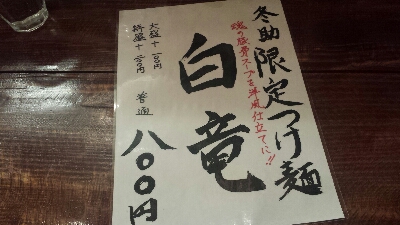 冬助限定つけ麺
魂の豚骨スープを洋風仕立てに!!
白竜
普通 八〇〇円
大盛十一〇〇円
特盛十二〇〇円